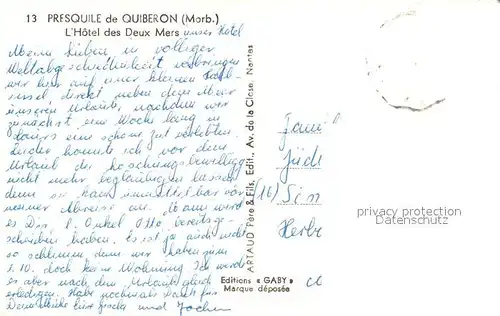 13 PRESQU'ILE de QUIBERON (Morb.)
L'Hôtel des Deux Mers unser Hotel
Meine Lieben in völliger
Weltabgeschiedenheit verbringen
wir hier auf einer kleinen Halb-
insel direkt neben dem Meer
unseren Urlaub, nachdem wir
zunächst eine Woche lang in
eine schöne Zeit verlebten.
Leider konnte ich vor dem
Urlaub die
nicht mehr beglaubigen lassen
denn sie kam unmittelbar vor
meiner Abreise an. Warum wird
es Dir l. Onkel Otto bereits ge-
schrieben haben. Es ist ja auch nicht
so schlimm, denn wir haben zum
1.10. doch keine Wohnung. Ich werde
es aber nach dem Urlaub gleich
erledigen. Habt nochmals Dank für
Grüße und Jochen
ARTAUD Père & Fils, Edit., Av. de la Close, Nantes
Famil
(16)
privacy protection
Datenschutz
Editions « GABY »
Marque déposée